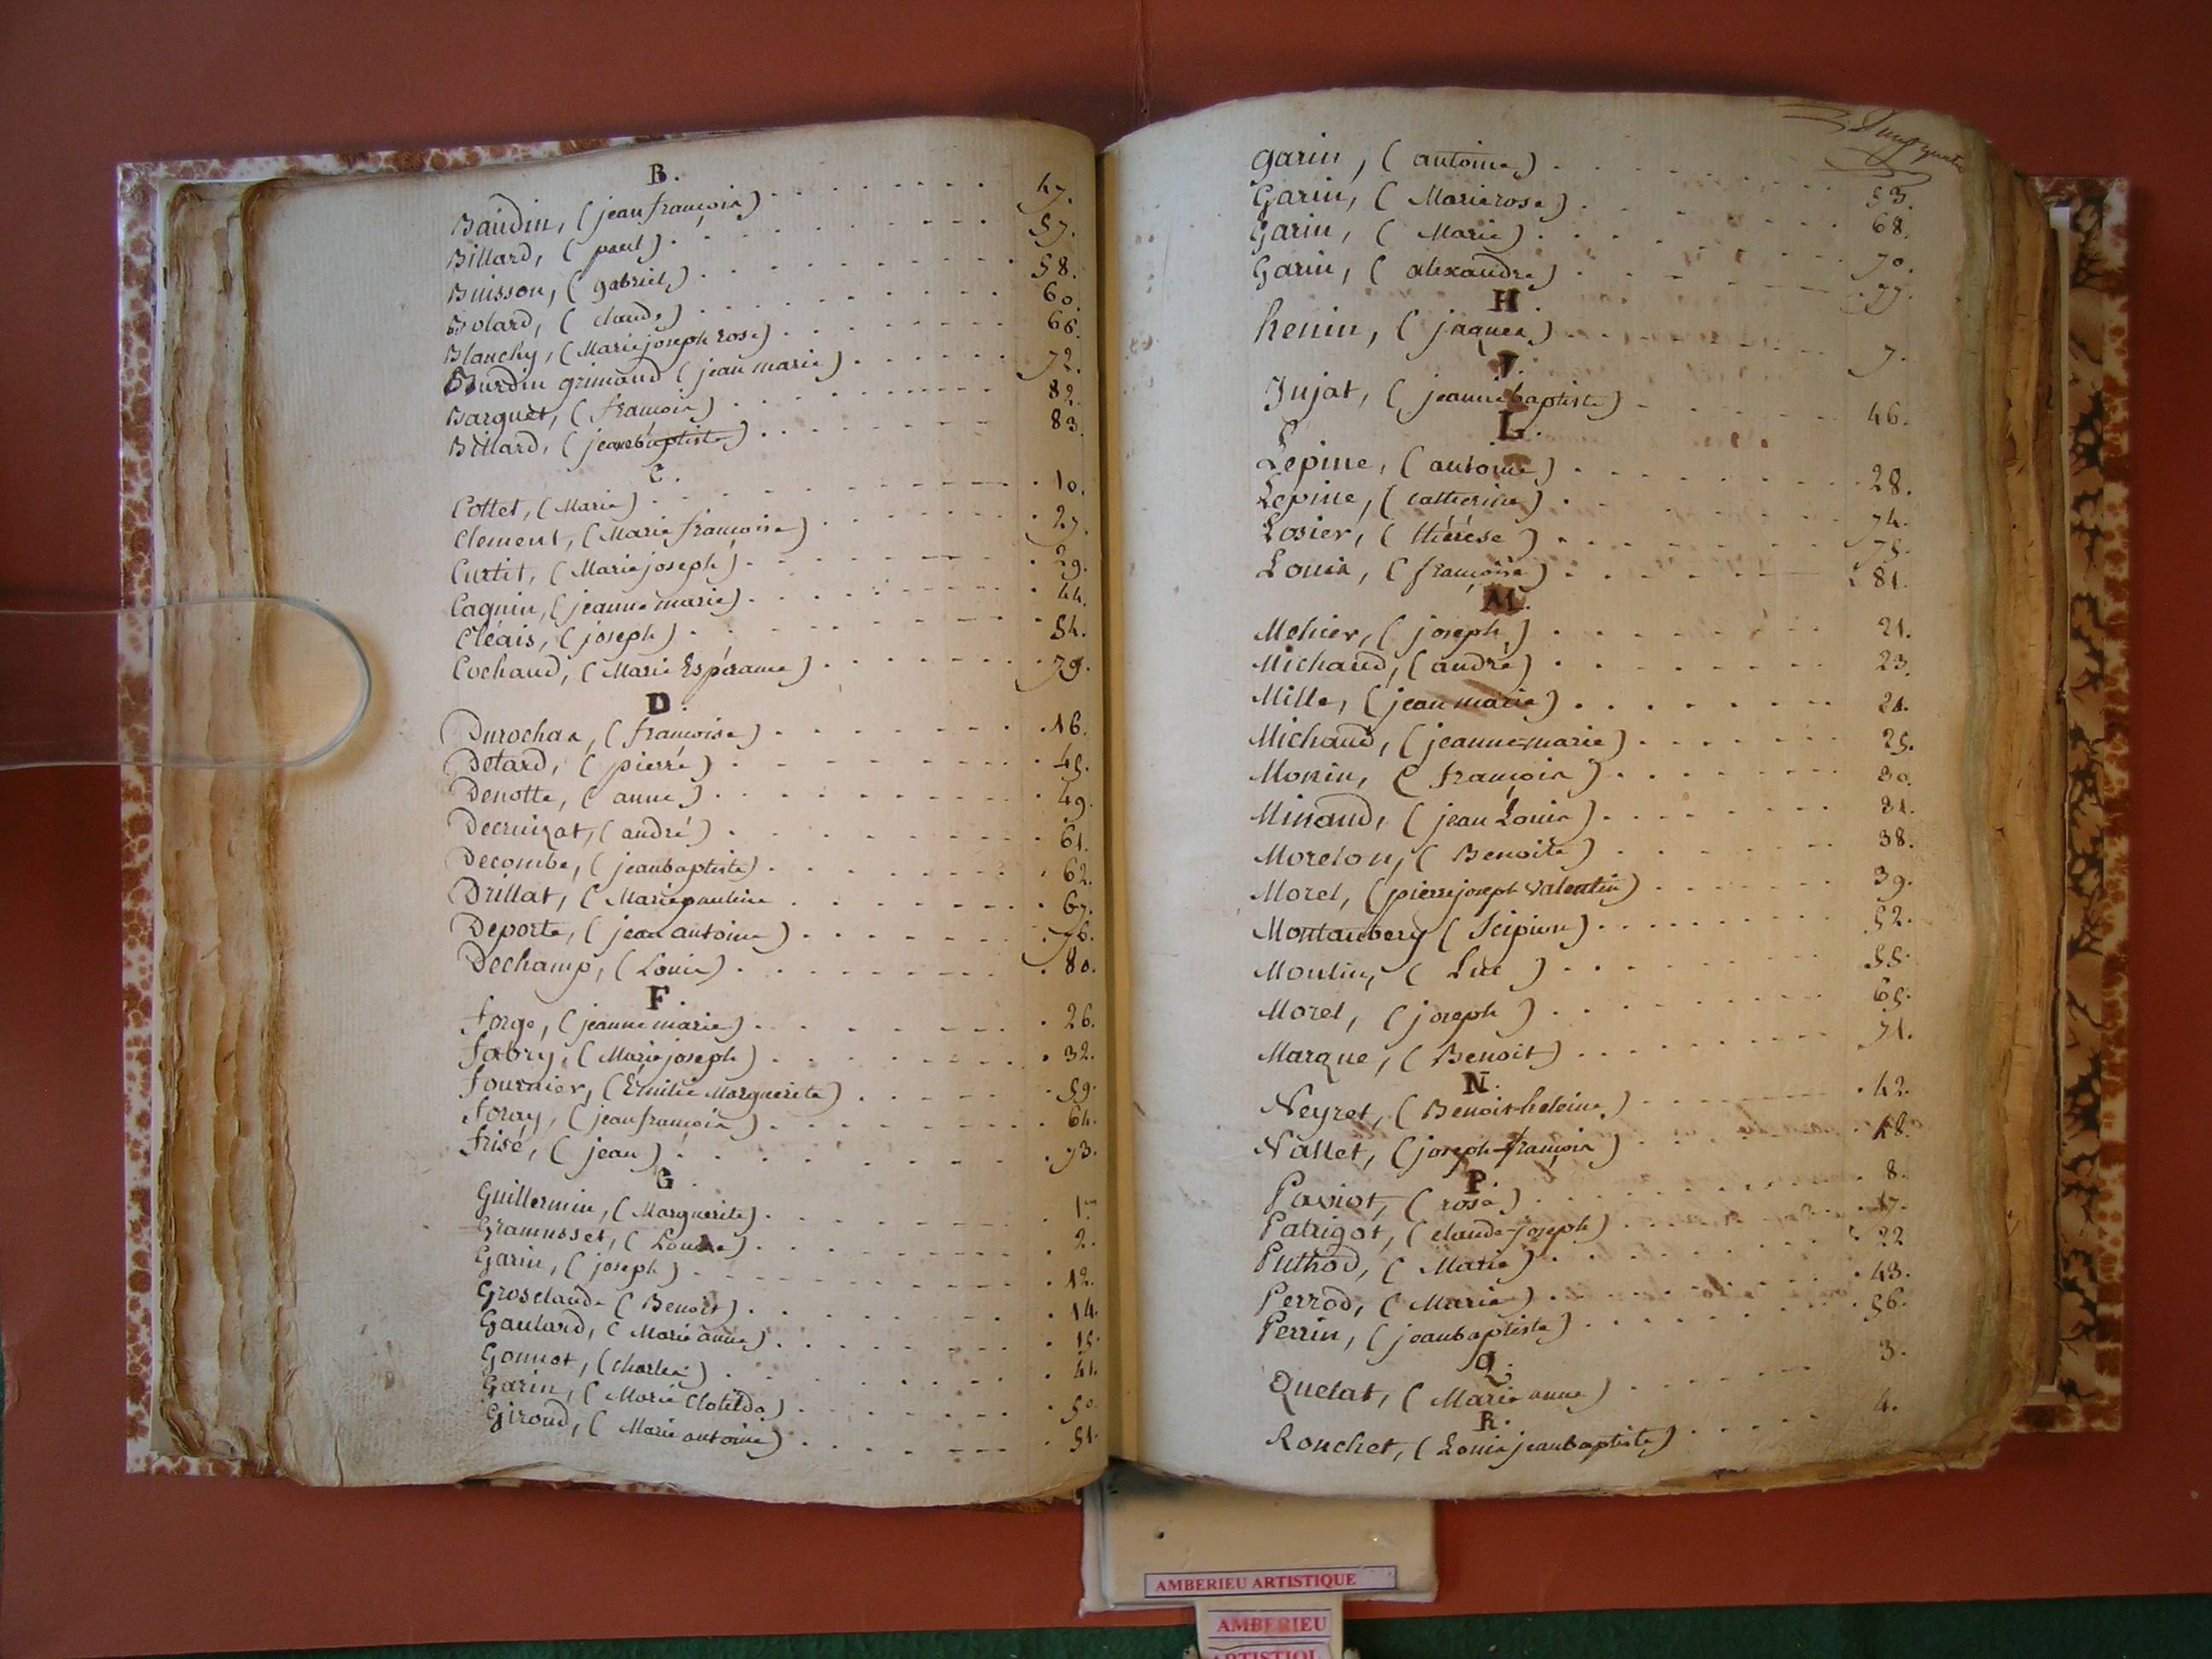 B.
Baudin, (jean françois) 47.
Billard, (paul) 57.
Buisson, (gabriel) 58.
Bolard, (claude) 60.
Blanchy, (Marie joseph rose) 66.
Burdin grimaud (jean marie) 72.
Barquet, (françois) 82.
Billard, (jean baptiste) 83.
C.
Cottet, (Marie) 10.
Clement, (Marie françoise) 27.
Curtit, (Marie joseph) 29.
Cagnin, (jeanne marie) 44.
Cléais, (joseph) 54.
Cochaud, (Marie Espérance) 79.
D.
Durochas, (françoise) 16.
Détard, (pierre) 45.
Denotte, (anne) 49.
Decruizat, (andré) 61.
Decombe, (jean baptiste) 62.
Drillat, (Marie pauline 67.
Deporte, (jean antoine) 76.
Dechamp, (Louis) 80.
F.
forge, (jeanne marie) 26.
fabry, (Marie joseph) 32.
fournier, (Emilie Marguerite) 59.
foray, (jean françois) 64.
frisé, (jean) 73.
G.
Guillermin, (Marguerite) 1.
Gramusset, (Louise) 2.
Garin, (joseph) 12.
Grosclaude (Benoit) 14.
Gaulard, (Marie anne) 15.
Gonnot, (Charles) 41.
Garin, (Marie Clotilde) 50.
Giroud, (Marie antoine) 51.
garin, (antoine) 53.
Garin, (Marie rose) 68.
Garin, (Marie) 70.
Garin, (alexandre) 77.
H.
henin, (jaques) 7.
J.
Jujat, (jeanne baptiste) 46.
L.
Lepine, (antoine) 28.
Lepine, (catherine) 74.
Losier, (thérése) 75.
Louis, (françoise) 81.
M.
Mehier, (joseph) 21.
Michaud, (andré) 23.
Mille, (jean marie) 24.
Michaud, (jeanne-marie) 25.
Monin, (françois) 30.
Minaud, (jean Louis) 31.
Morelon, (Benoite) 38.
Morel, (pierre joseph valentin) 39.
Montaubery (Scipion) 52.
Moulin, (Luc) 55.
Morel, (joseph) 65.
Marque, (Benoit) 71.
N.
Neyret, (Benoit-heleine) 42.
Nallet, (joseph-françois) 48.
P.
Paviot, (rose) 8.
Patrigot, (claude-joseph) 17.
Puthod, (Marie) 22
Perrod, (Marie) 43.
Perrin, (jean baptiste) 56.
Q.
Quelat, (Marie anne) 3.
R.
Rouchet, (Louis jean baptiste) 4.
AMBERIEU ARTISTIQUE
AMBERIEU